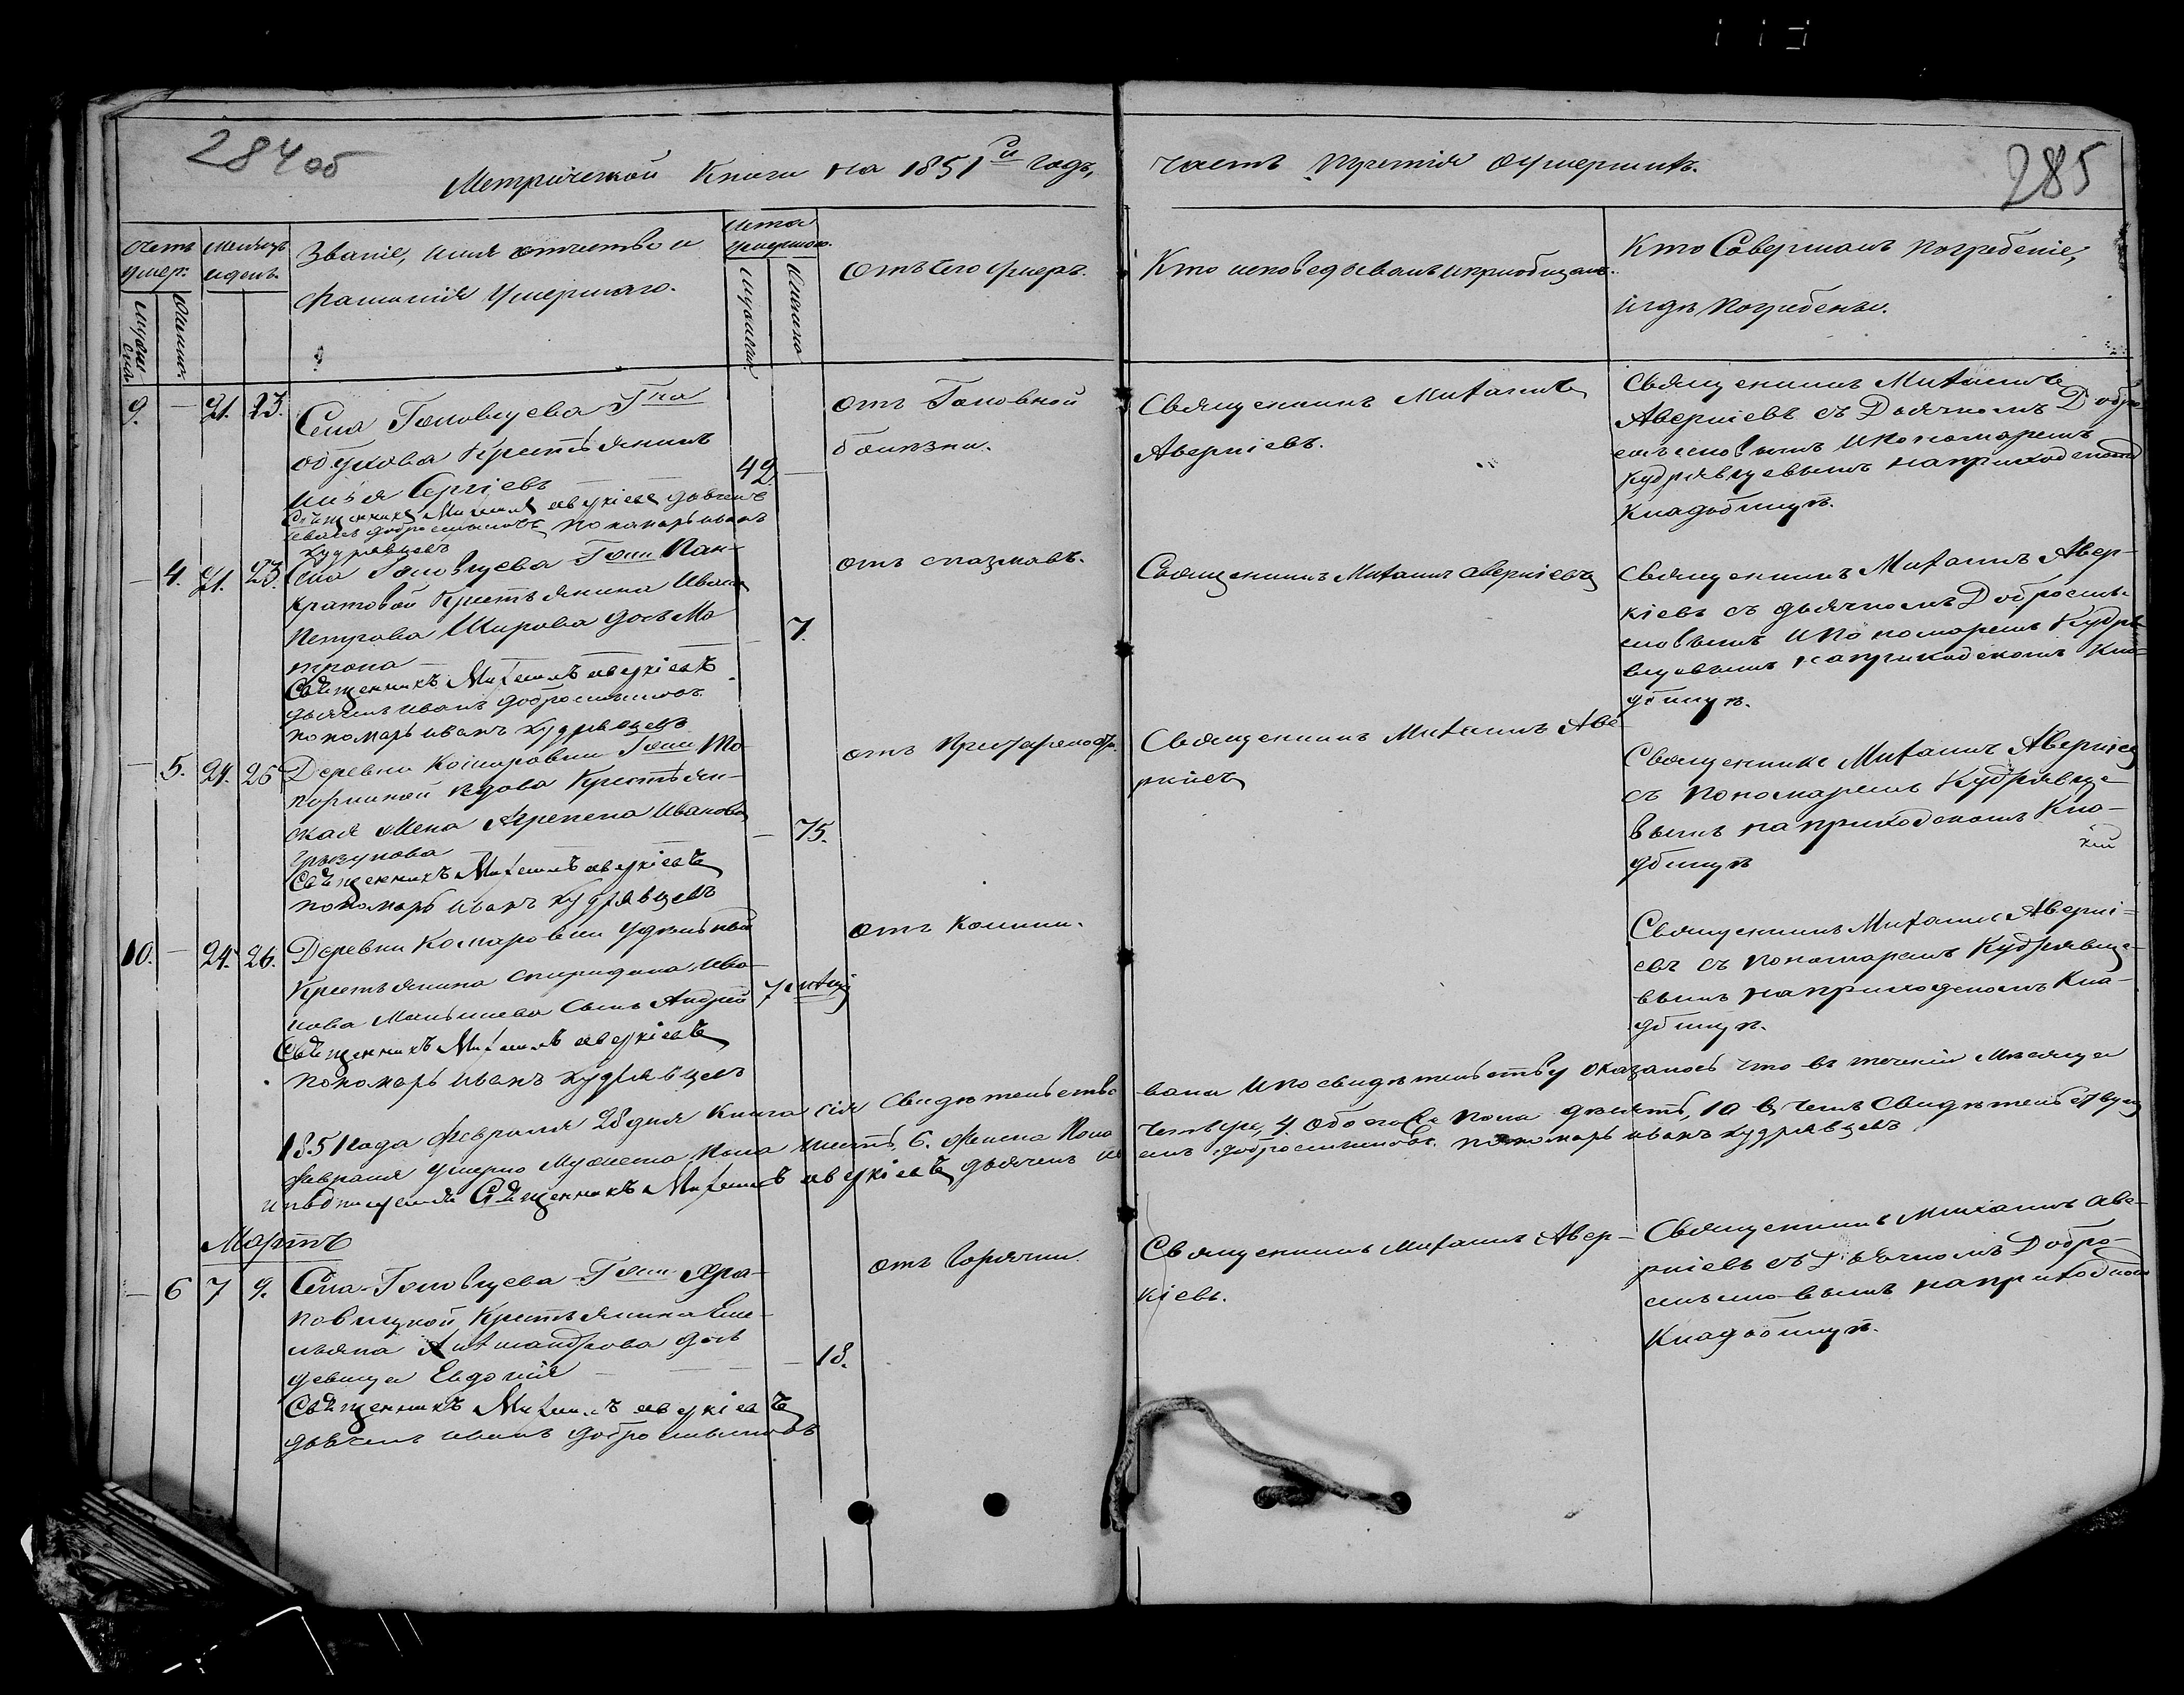 284 об
285
Метрической Книги на 1851й годъ,
часть Третія оумершихъ.
Счетъ умер:
Мужеска
Женска
Месяцъ и день
Званіе, имя отчество и
фамилія умершаго.
Лета умершаго.
Мужеска
Женска
Отъ чего умеръ.
Кто исповедывалъ и приобщалъ.
Кто Совершалъ погребеніе,
и где погребены.
9. — 21. 23.
Села Головщева Гна
обухова Крестьянинъ
Илья Сергіевъ
49 —
Священникъ Михаилъ аверкіевъ дьячекъ
иванъ добросмысловъ пономарь иванъ
кудрявцевъ
отъ Головной
болезни.
Священникъ Михаилъ
Аверкіевъ.
Священникъ Михаилъ
Аверкіевъ съ Дьячкомъ Добро-
смысловымъ и пономаремъ
Кудрявцевымъ на приходскомъ
Кладбищѣ.
— 4. 21. 23.
Села Головщева Гжи Пан-
кратовой Крестьянина Ивана
Петрова Широва дочь Ма
трона
— 7.
Священникъ Михаилъ аверкіевъ
дьячекъ иванъ добросмысловъ
пономарь иванъ кудрявцевъ
отъ спазмовъ.
Священникъ Михаилъ аверкіевъ
Священникъ Михаилъ Авер-
кіевъ съ дьячкомъ Добросмы-
словымъ и Пономаремъ Кудря-
вцевымъ на приходскомъ Кла-
дбищѣ.
— 5. 24. 26
Деревни Комаровки Гжи
вдова Крестьян-
ская жена Агрепена Иванова
— 75.
Священникъ Михаилъ аверкіевъ
пономарь иванъ кудрявцевъ
отъ Престарелости
Священникъ Михаилъ Аве
ркіевъ
Священникъ Михаилъ Аверкіевъ
съ Пономаремъ Кудрявце-
вымъ на приходскомъ Кла-
дбищѣ
10. — 24. 26.
Деревни Комаровки удельнаго
Крестьянина Спиридона Ива-
нова сынъ Андрей
7
Священникъ Михаилъ аверкіевъ
пономарь иванъ кудрявцевъ
отъ Колики.
Священникъ Михаилъ Аверкі=
евъ съ пономаремъ Кудрявце-
вымъ на приходскомъ Кла-
дбищѣ.
1851 года февраля 28 дня Книга сія Свидетельство
вана и по свидетельству оказалось что въ теченіи Месяца
Февраля умерло Мужеска пола шесть, 6. женска Пола
четыре, 4. обоего пола десять, 10 въ чемъ Свидетельствуемъ
и подписуемся Священникъ Михаилъ аверкіевъ дьячекъ ив
анъ добросмысловъ. пономарь иванъ кудрявцевъ
Мартъ
— 6 7 9.
Села Головщева Гжи
Крестьянина Еме-
льяна дочь
девица Евдокія
— 18.
Священникъ Михаилъ аверкіевъ
дьячекъ иванъ добросмысловъ
отъ Горячки
Священникъ Михаилъ Авер-
кіевъ.
Священникъ Михаилъ аве-
ркіевъ съ Дьячкомъ Добро-
смысловымъ на приходскомъ
Кладбищѣ.